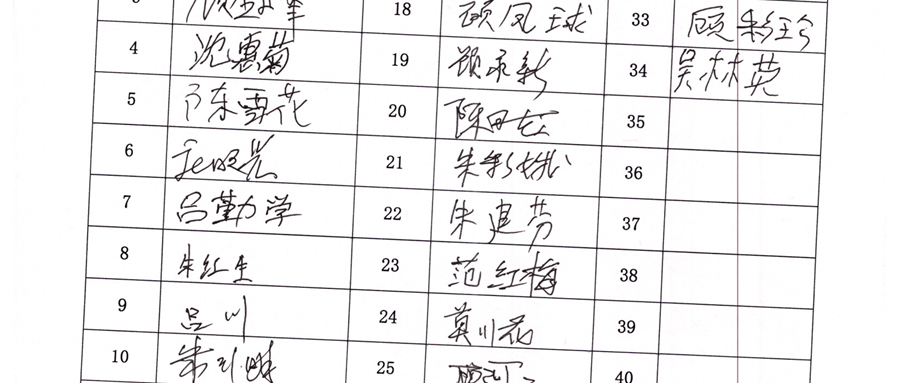 18 顾凤球 33 顾彩珍
4 沈惠菊 19 顾永新 34 吴林英
5 陈雪花 20 陈田红 35
6 21 朱彩娥 36
7 吕勤学 22 朱建芳 37
8 朱红生 23 范红梅 38
9 吕川 24 莫川花 39
10 25 40